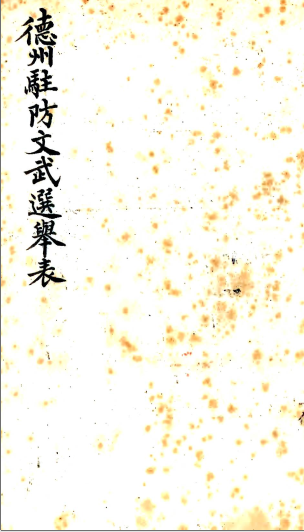 德州駐防文武選舉表